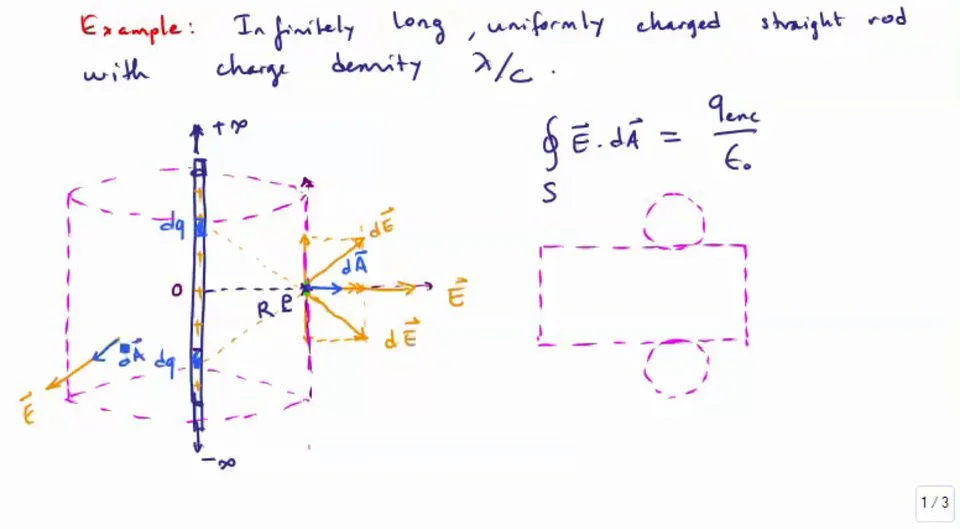 Example: Infinitely long, uniformly charged straight rod
with charge density λ/c.
+∞
∮ E⃗ · dA⃗ = qenc/ϵ₀
S
dq
dE⃗
dA⃗
O
R P
E⃗
dE⃗
dA⃗
dq
E⃗
-∞
1 / 3